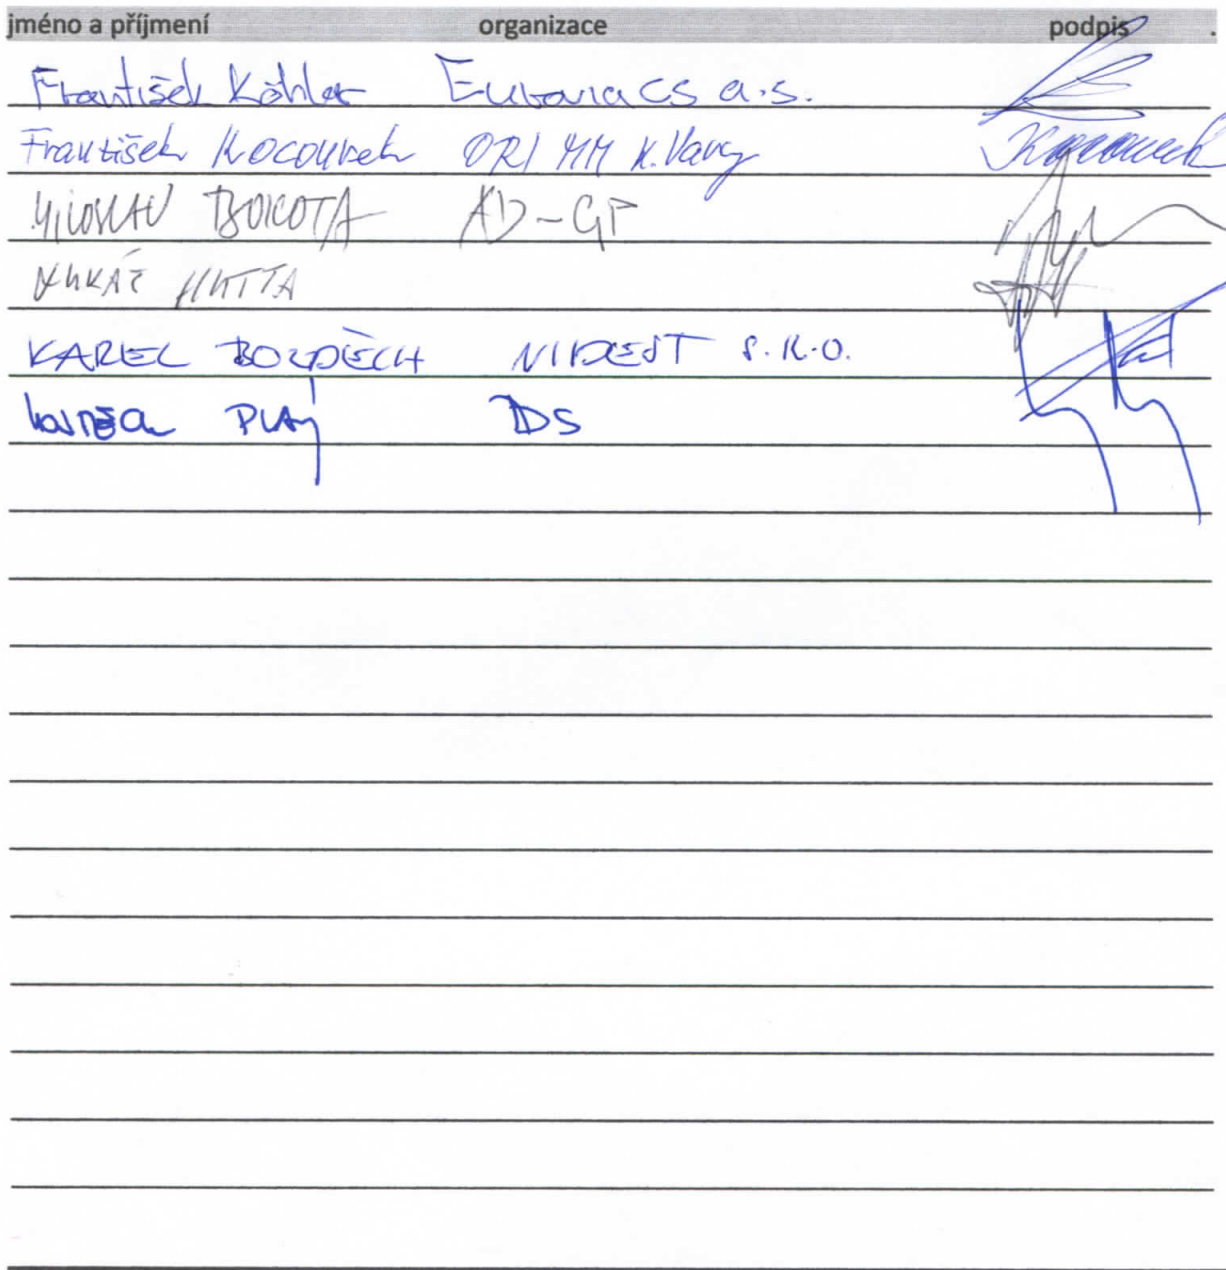 jméno a příjmení organizace podpis
František Köhler Eurovia CS a.s.
František Kocourek ORI MM K.Vary
MILOSLAV BOKOTA AD-GP
LUKÁŠ HUTTA
KAREL BOZDĚCH S.R.O.
VOJTĚCH DS